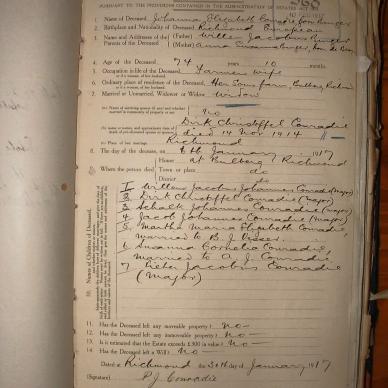 PURSUANT TO THE PROVISIONS CONTAINED IN THE ADMINISTRATION OF ESTATES ACT, 1913
1 Name of Deceased Johanna Elizabeth Conradie
2. Birthplace and Nationality of Deceased Richmond European
3. Names and Addresses of the Parents of the Deceased (Father) Willem Jacobus Burger
(Mother) Anna Susanna Burger
4. Age of the Deceased 74 years 10 months
5. Occupation in life of the Deceased Farmers wife
6. Ordinary place of residence of the Deceased Her Sons farm, Bulberg, Richmond
7. Married or Unmarried, Widower or Widow Widow
No
Dirk Christoffel Conradie
died 14 Nov 1914
(c) Place of last marriage Richmond
8. The day of the decease, on 8th January 1917
9. Where the person died House at Bulberg Richmond
Town or place do
District do
10. Names of Children of Deceased,
1 Willem Jacobus Johannes Conradie (major)
2 Dirk Christoffel Conradie (major)
3 Schalk Johannes Conradie (major)
4 Jacob Johannes Conradie (major)
5 Martha Maria Elizabeth Conradie,
married to B. J. Visser
6 Susanna Cornelia Conradie,
married to A. J. Conradie
7 Pieter Jacobus Conradie
(major)
11. Has the Deceased left any movable property? No
12. Has the Deceased left any immovable property? No
13. Is it estimated that the Estate exceeds £300 in value? No
14 Has the Deceased left a Will? No
Dated at Richmond on 30th day January 1917
(Signature) P J Conradie